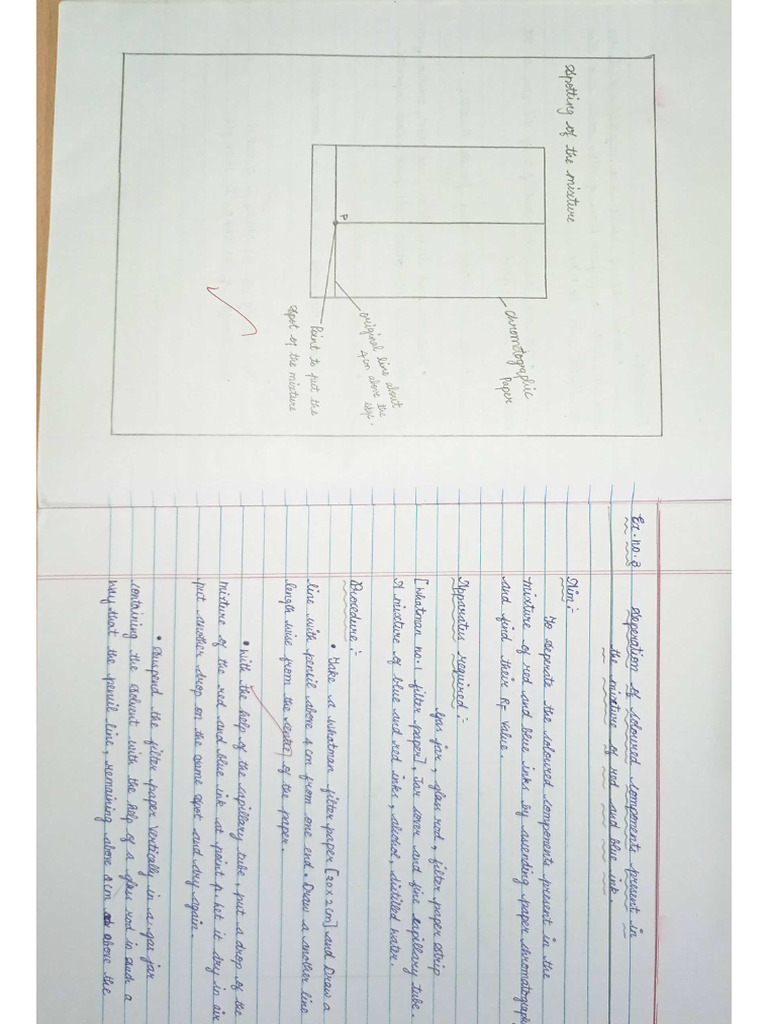 Spotting of the mixture
chromotographic
Paper
original line about
4cm above the
edge.
Point to put the
spot of the mixture
P
Ex.no.3 Seperation of coloured components present in
the mixture of red and blue ink.
Aim:-
To seperate the coloured components present in the
mixture of red and blue inks by asending paper chromatography
and find their RF value.
Apparatus required:-
Gas jar, glass rod, filter paper strip
[Whatman no.1 filter paper], Jar cover and fine capillary tube.
A mixture of blue and red inks, alcohol, distilled water.
Procedure:-
• Take a whatman filter paper [20x2cm] and Draw a
line with pencil above 4cm from one end. Draw a another line
length wise from the centre of the paper.
• With the help of the capillary tube, put a drop of the
mixture of the red and blue ink at point P. Let it dry in air
put another drop on the same spot and dry again.
• Suspend the filter paper vertically in a gas jar
containing the solvent with the help of a glass rod in such a
way, that the pencil line, remaining above 2cm above the